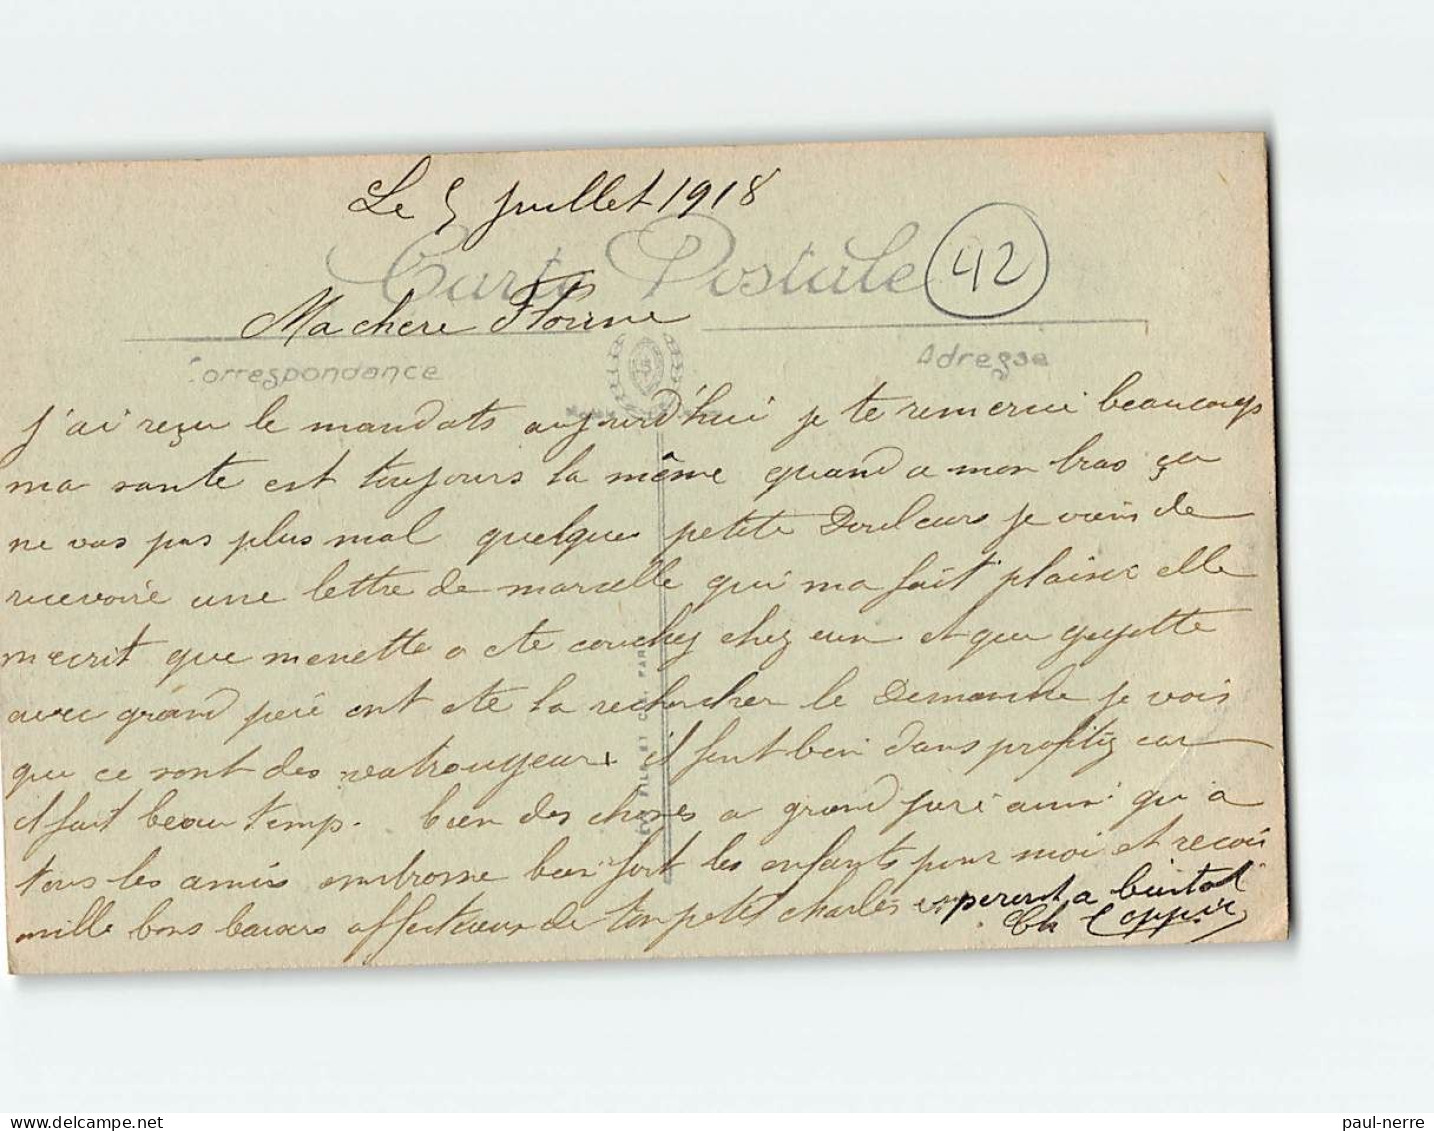 Le 5 Juillet 1918
Carte Postale
42
Ma chere
Correspondance
Adresse
j'ai reçu le mandats aujourd'hui je te remercui beaucoups
ma sante est toujours la même quand a mon bras ça
ne vas pas plus mal quelque petite Douleurs je viens de
recevoire une lettre de marcelle qui ma fait plaisir elle
mecrit que menette a ete couchez chez eux et que guyotte
avec grand peré ont ete la rechercher le Demanche je vois
que ce sont des il faut bien dans profitez car
il fait beau temp. bien des choses a grand peré ainsi qu'a
tous les amis embrasse bien fort les enfants pour moi et recois
mille bons baisers affectueux de ton petit charles esperent a bientot
Ch
LEVY FILS ET CIE, PARIS
paul-nerre